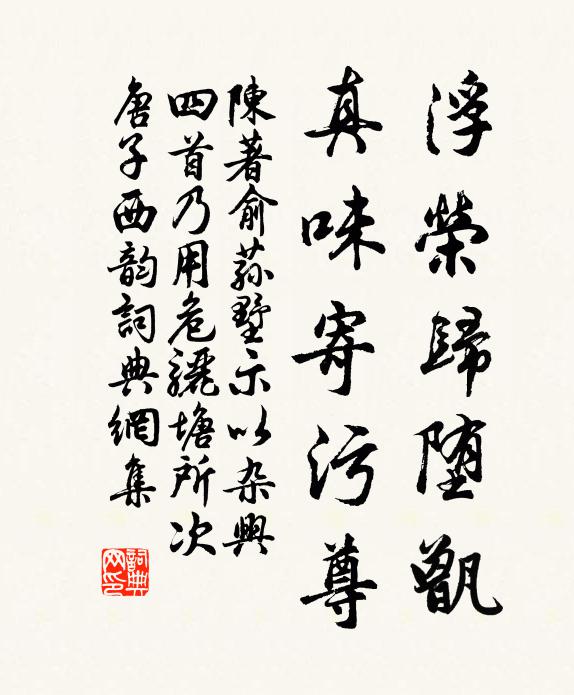 浮榮歸堕甑
真味寄污尊
陳著俞荪墅示以杂興
四首乃用危驪塘所次
唐子西韵詞典網集
詞典网印